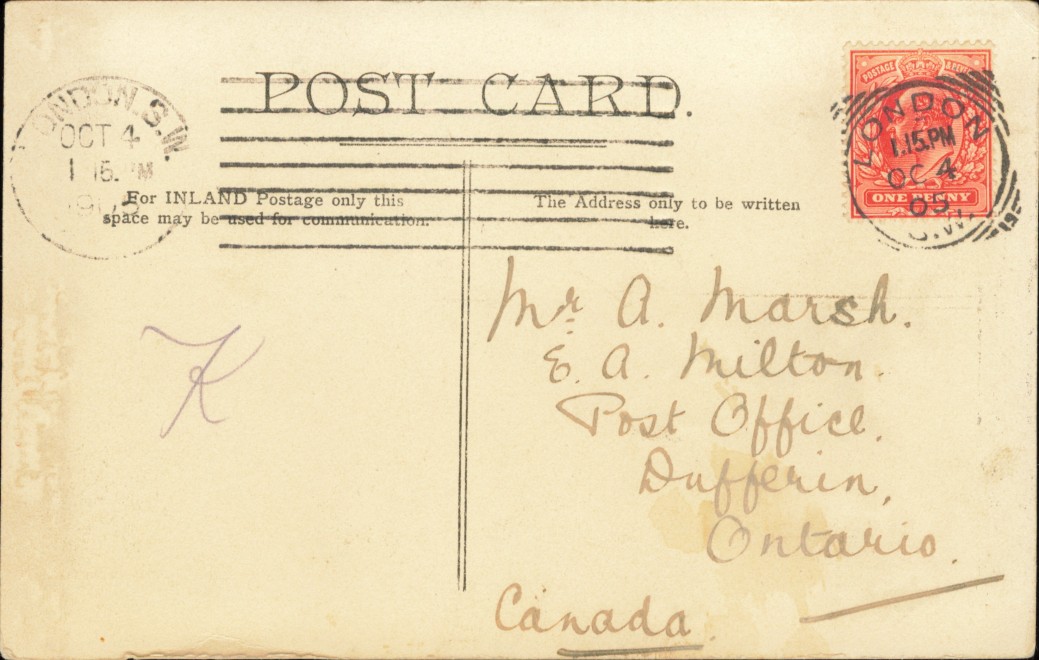 POST CARD.
LONDON. S.W.
OCT 4
1 15. PM
POSTAGE
LONDON
1.15.PM
OC 4
09
S.W.
ONE PENNY
For INLAND Postage only this
space may be used for communication.
The Address only to be written
here.
K
Mr. A. Marsh.
E. A. Milton.
Post Office.
Dufferin,
Ontario.
Canada.